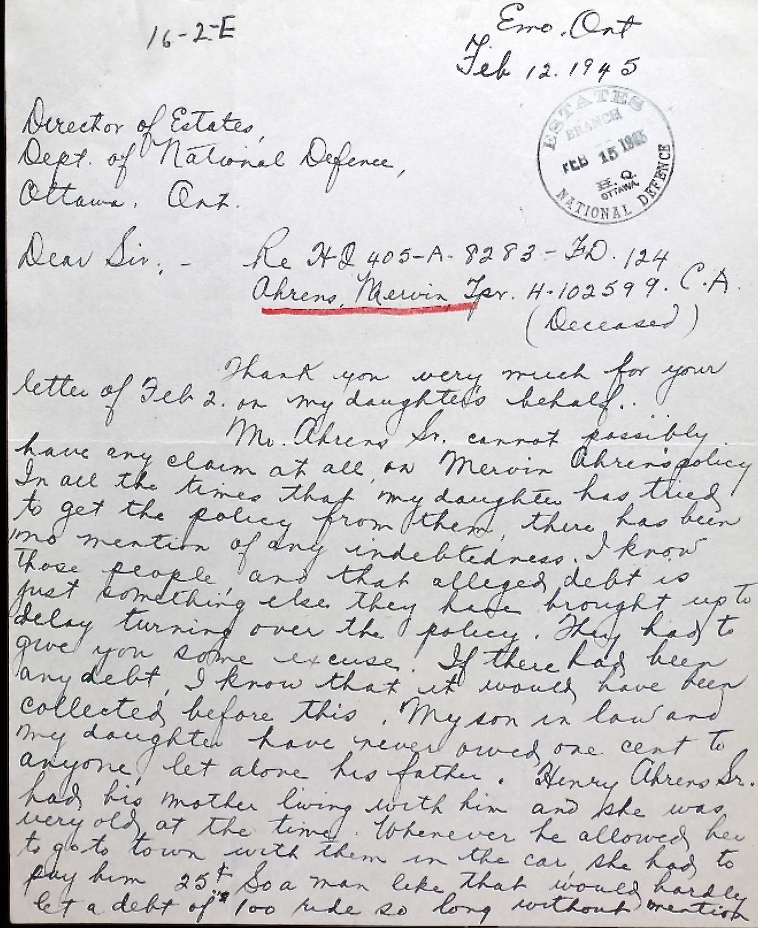 16-2-E
Emo. Ont
Feb 12. 1945
ESTATES
BRANCH
FEB 15 1945
H.Q.
OTTAWA
NATIONAL DEFENCE
Director of Estates,
Dept. of National Defence,
Ottawa. Ont.
Dear Sir; - Re HQ 405-A-8283-FD. 124
Ahrens, Mervin, Tpr. H-102599. C.A.
(Deceased)
Thank you very much for your
letter of Feb 2. on my daughter's behalf..
Mr. Ahrens Sr. cannot possibly
have any claim at all, on Mervin Ahrens policy
In all the times that my daughter has tried
to get the policy from them, there has been
no mention of any indebtedness. I know
those people, and that alleged debt is
just something else they have brought up to
delay turning over the policy. They had to
give you some excuse. If there had been
any debt, I know that it would have been
collected before this. My son in law and
my daughter have never owed one cent to
anyone, let alone his father. Henry Ahrens Sr.
had his mother living with him and she was
very old at the time. Whenever he allowed her
to go to town with them in the car she had to
pay him 25¢ So a man like that would hardly
let a debt of $100 ride so long without mention